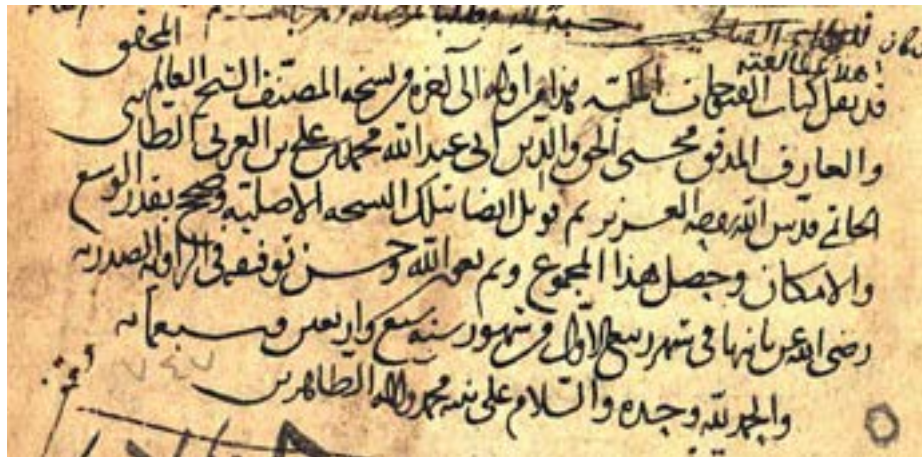 المحقق
قد نقل كتاب الفتوحات المكيه هذا من اوله الى آخره من نسخه المصنف الشيخ العالم
والعارف المدقق محيى الحق والدين ابى عبد الله محمد بن على بن العربى الطائى
الحاتمى قدس الله روحه العزيز ثم قوبل ايضا بتلك النسخه الاصليه وصحح بقدر الوسع
والامكان وحصل هذا المجموع وتم بعون الله وحسن توفيقه فى الزاويه الصدريه
رضى الله عن بانيها فى شهر ربيع الاول من شهور سنه سبع واربعين وسبعمايه
والحمد لله وحده والسلام على نبيه محمد وآله الطاهرين
٧٤٧